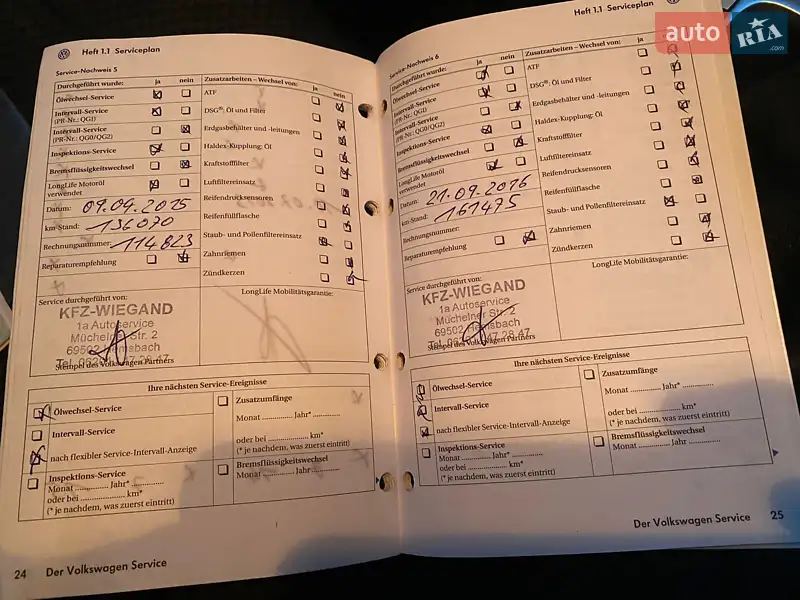 Heft 1.1 Serviceplan
Service-Nachweis 5
Durchgeführt wurde: ja nein
Ölwechsel-Service
Intervall-Service
(PR-Nr.: QG1)
Intervall-Service
(PR-Nr.: QG0/QG2)
Inspektions-Service
Bremsflüssigkeitswechsel
LongLife Motoröl
verwendet
Datum: 09.04.2015
km-Stand: 136070
Rechnungsnummer: 114823
Reparaturempfehlung
Zusatzarbeiten – Wechsel von: ja nein
ATF
DSG®: Öl und Filter
Erdgasbehälter und -leitungen
Haldex-Kupplung: Öl
Kraftstofffilter
Luftfiltereinsatz
Reifendrucksensoren
Reifenfüllflasche
Staub- und Pollenfiltereinsatz
Zahnriemen
Zündkerzen
Service durchgeführt von:
KFZ-WIEGAND
1a Autoservice
Mücheln Str. 2
69502 Hemsbach
Stempel des Volkswagen Partners
LongLife Mobilitätsgarantie:
Ihre nächsten Service-Ereignisse
Ölwechsel-Service
Intervall-Service
nach flexibler Service-Intervall-Anzeige
Inspektions-Service
Monat ............ Jahr* ............
oder bei ............ km*
(* je nachdem, was zuerst eintritt)
Zusatzumfänge
Monat ............ Jahr* ............
oder bei ............ km*
(* je nachdem, was zuerst eintritt)
Bremsflüssigkeitswechsel
Monat ............ Jahr ............
24 Der Volkswagen Service
Heft 1.1 Serviceplan
Service-Nachweis 6
Durchgeführt wurde: ja nein
Ölwechsel-Service
Intervall-Service
(PR-Nr.: QG1)
Intervall-Service
(PR-Nr.: QG0/QG2)
Inspektions-Service
Bremsflüssigkeitswechsel
LongLife Motoröl
verwendet
Datum: 21.09.2016
km-Stand: 161475
Rechnungsnummer:
Reparaturempfehlung
Zusatzarbeiten – Wechsel von: ja nein
ATF
DSG®: Öl und Filter
Erdgasbehälter und -leitungen
Haldex-Kupplung: Öl
Kraftstofffilter
Luftfiltereinsatz
Reifendrucksensoren
Reifenfüllflasche
Staub- und Pollenfiltereinsatz
Zahnriemen
Zündkerzen
Service durchgeführt von:
KFZ-WIEGAND
1a Autoservice
Str. 2
69502 Hemsbach
Stempel des Volkswagen Partners
LongLife Mobilitätsgarantie:
Ihre nächsten Service-Ereignisse
Ölwechsel-Service
Intervall-Service
nach flexibler Service-Intervall-Anzeige
Inspektions-Service
Monat ............ Jahr* ............
oder bei ............ km*
(* je nachdem, was zuerst eintritt)
Zusatzumfänge
Monat ............ Jahr* ............
oder bei ............ km*
(* je nachdem, was zuerst eintritt)
Bremsflüssigkeitswechsel
Monat ............ Jahr ............
Der Volkswagen Service 25
auto RIA .com